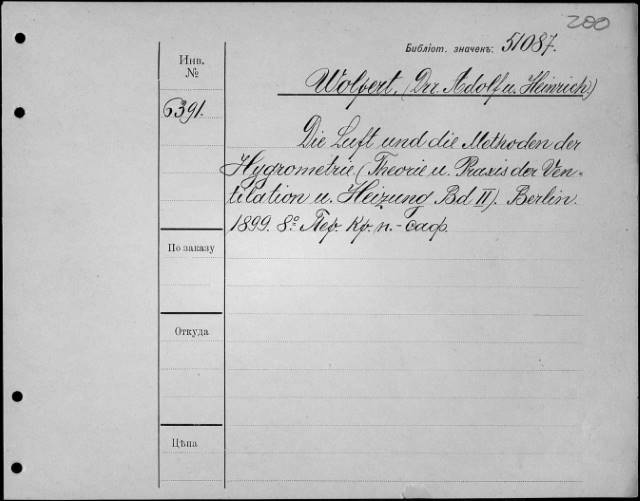 200
Библіот. значекъ: 51087.
Инв.
№
Wolpert. (Drr. Adolf u. Heinrich)
6391.
Die Luft und die Methoden der
Hygrometrie (Theorie u. Praxis der Ven-
tilation u. Heizung Bd II). Berlin.
1899. 8º. Пер. Кр. п.-саф.
По заказу
Откуда
Цѣна